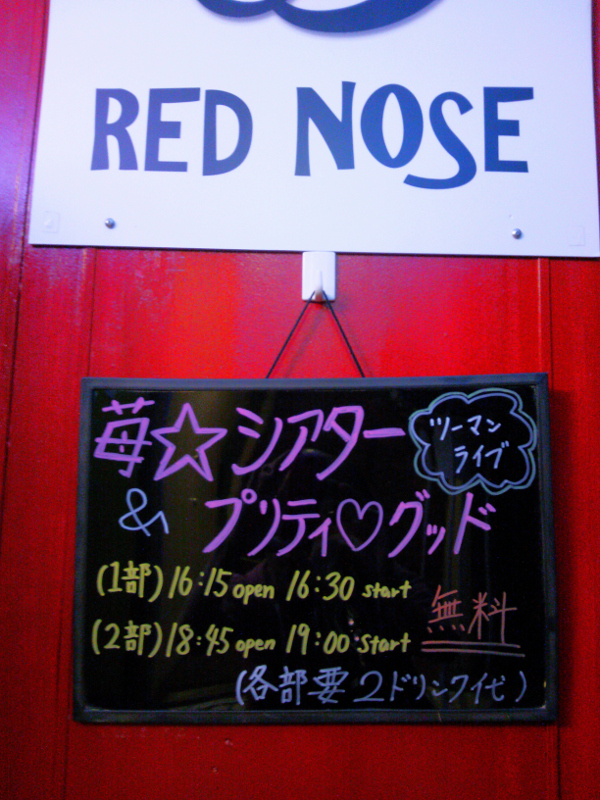 RED NOSE
苺☆シアター
ツーマン
ライブ
& プリティ♡グッド
(1部) 16:15 open 16:30 start
(2部) 18:45 open 19:00 start
無料
(各部要2ドリンク代)